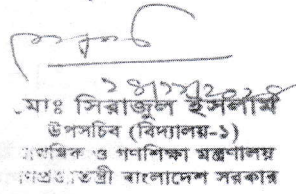 ২৪/১১/২০২০
মোঃ সিরাজুল ইসলাম
উপসচিব (বিদ্যালয়-১)
প্রাথমিক ও গণশিক্ষা মন্ত্রণালয়
গণপ্রজাতন্ত্রী বাংলাদেশ সরকার